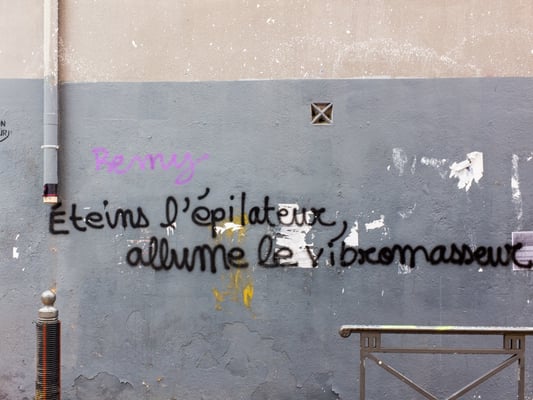 Remy
Éteins l'épilateur,
allume le vibromasseur